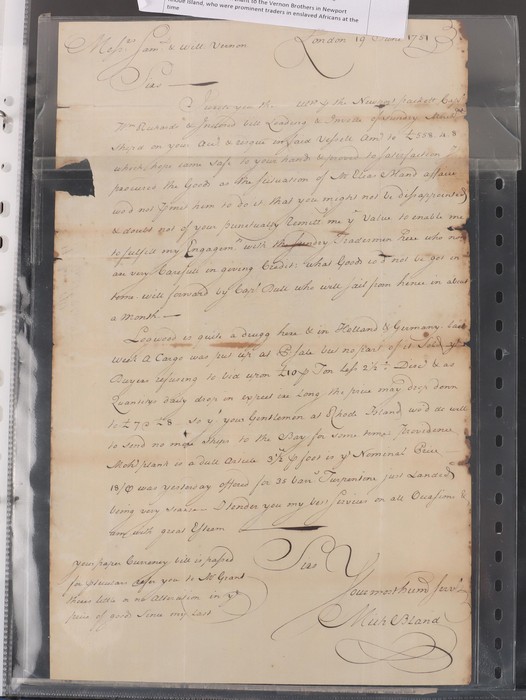 to the Vernon Brothers in Newport
Rhode Island, who were prominent traders in enslaved Africans at the
time
Mess.rs Sam.l & Will. Vernon
London 19 June 1751
Sirs
I wrote you the the Newport packett Cap.t
& Inclosed bill Loading & Invoice of Sundry Merch
Shipd on your Acc.t & risque in said Vessell Am.t to £558
which hope came safe to your hands & proved to Satisfaction I
procured the Goods as the Situation of M.r Elias Bland affairs
wod not permit him to do it that you might not be disappointed
& doubt not of your punctually Remitt.g me y.e Value to enable me
to fulfill my Engagem.ts with the Sundry Tradesmen here who now
are very Carefull in giving Credit: what Goods co'd not be got in
time will forward by Cap.t Bull who will sail from hence in about
a Month.—
Logwood is quite a drugg here & in Holland & Germany. last
Week A Cargo was put up at Pb. sale but no part of it Sold
Buyers refusing to bid upon £10 p Ton Less 2½ Disc.t & as
Quantitys daily drop in expect ere Long the price may drop down
to £7 @ £8. so y.t your Gentlemen at Rhode Island wo'd do well
to send no more Ships to the Bay for some time. Providence
Moh.y plank is a dull Article 3½ p foot is y.e Nominal Price
18/ p was yesterday offered for 35 bar.s Turpentine just Landed
being very Scarce — I tender you my best Services on all Occasions &
am with great Esteem
Sirs
Your most hum.l Serv.t
Mich Bland
your paper Currency bill is passed
for refer you to M.r Grant
there little or no Alteration in y.e
price of goods Since my last